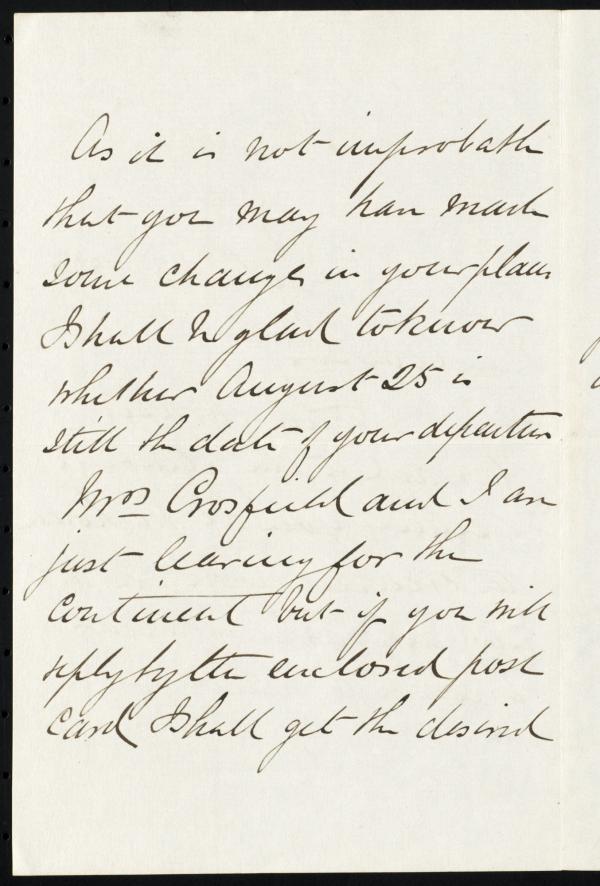 As it is not improbable
that you may have made
some changes in your plans
I shall be glad to know
whether August 25 is
still the date of your departure
Mrs Crosfield and I are
just leaving for the
Continent but if you will
reply by the enclosed post
card I shall get the desired